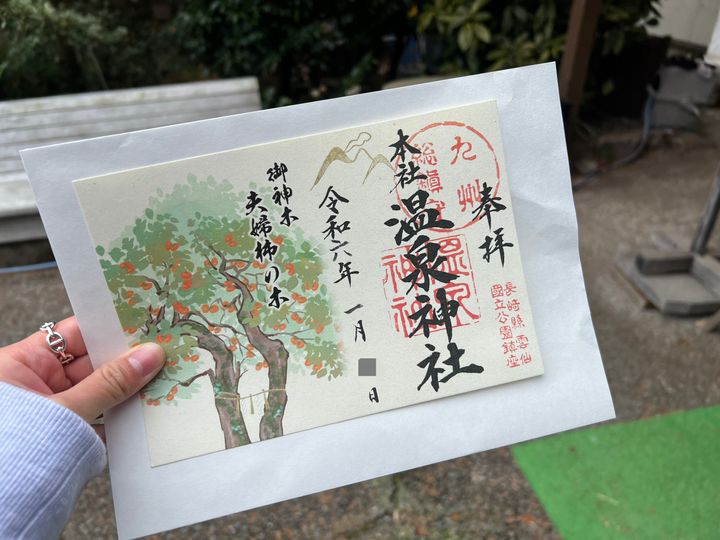 奉拝
九州
総鎮守
本社
温泉神社
温泉
神社
長崎縣雲仙
國立公園鎮座
令和六年
一月 日
御神木
夫婦柿の木